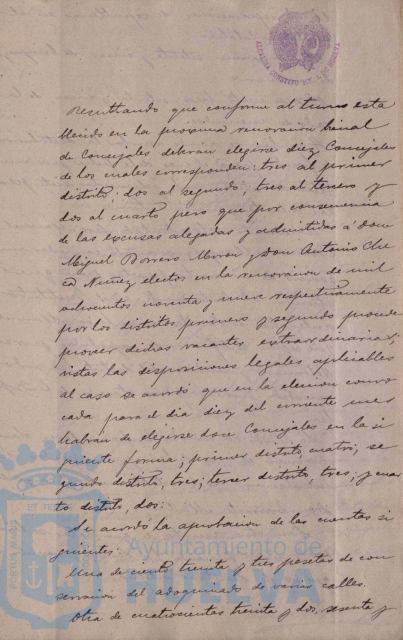 ALCALDIA CONSTITUCIONAL DE HUELVA
Resultando que conforme al turno esta
blecido en la próxima renovacion bienal
de Concejales deberán elegirse diez Concejales
de los cuales corresponden: tres al primer
distrito; dos al segundo; tres al tercero y
dos al cuarto pero que por consecuencia
de las excusas alegadas y admitidas á Don
Miguel Borrero Moron y Don Antonio
Nuñez electos en la renovacion de mil
ochocientos noventa y nueve respectivamente
por los distritos primero y segundo procede
proveer dichas vacantes extraordinarias,
vistas las disposiciones legales aplicables
al caso se acordó que en la eleccion convo
cada para el dia diez del corriente mes
habran de elegirse doce Concejales en la si
guiente forma; primer distrito, cuatro; se
gundo distrito, tres; tercer distrito, tres; y cuar
to distrito, dos.
Se acordó la aprobacion de las cuentas si
guientes:
Una de ciento treinta y tres pesetas de con
servacion del adoquinado de varias calles.
Otra de cuatrocientas treinta y dos, sesenta y
PORTUS MARIS ET TERRAE
Ayuntamiento de
HUELVA